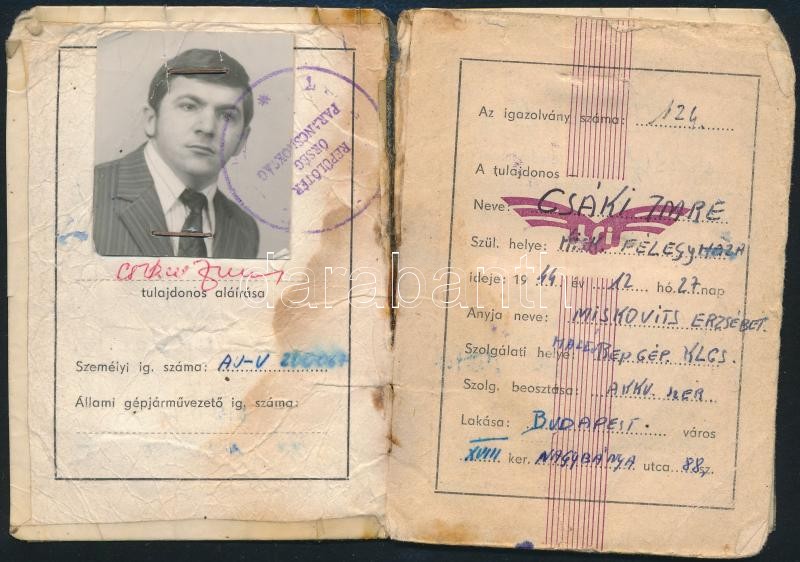 REPÜLŐTÉR
ŐRSÉG
PARANCSNOKSÁG
7
tulajdonos aláírása
Személyi ig. száma: AU-V
Állami gépjárművezető ig. száma:
Az igazolvány száma: 124.
A tulajdonos –
Neve: CSÁKI IMRE
Szül. helye: KISK. FÉLEGYHÁZA
ideje: 19 44. év 12 hó. 27 nap
Anyja neve: MISKOVITS ERZSÉBET.
Szolgálati helye: MALÉV REP.GÉP.
Szolg. beosztása: AKKU.
Lakása: BUDAPEST. város
XVIII ker. NAGYBÁNYA utca 88. sz.
darabanth